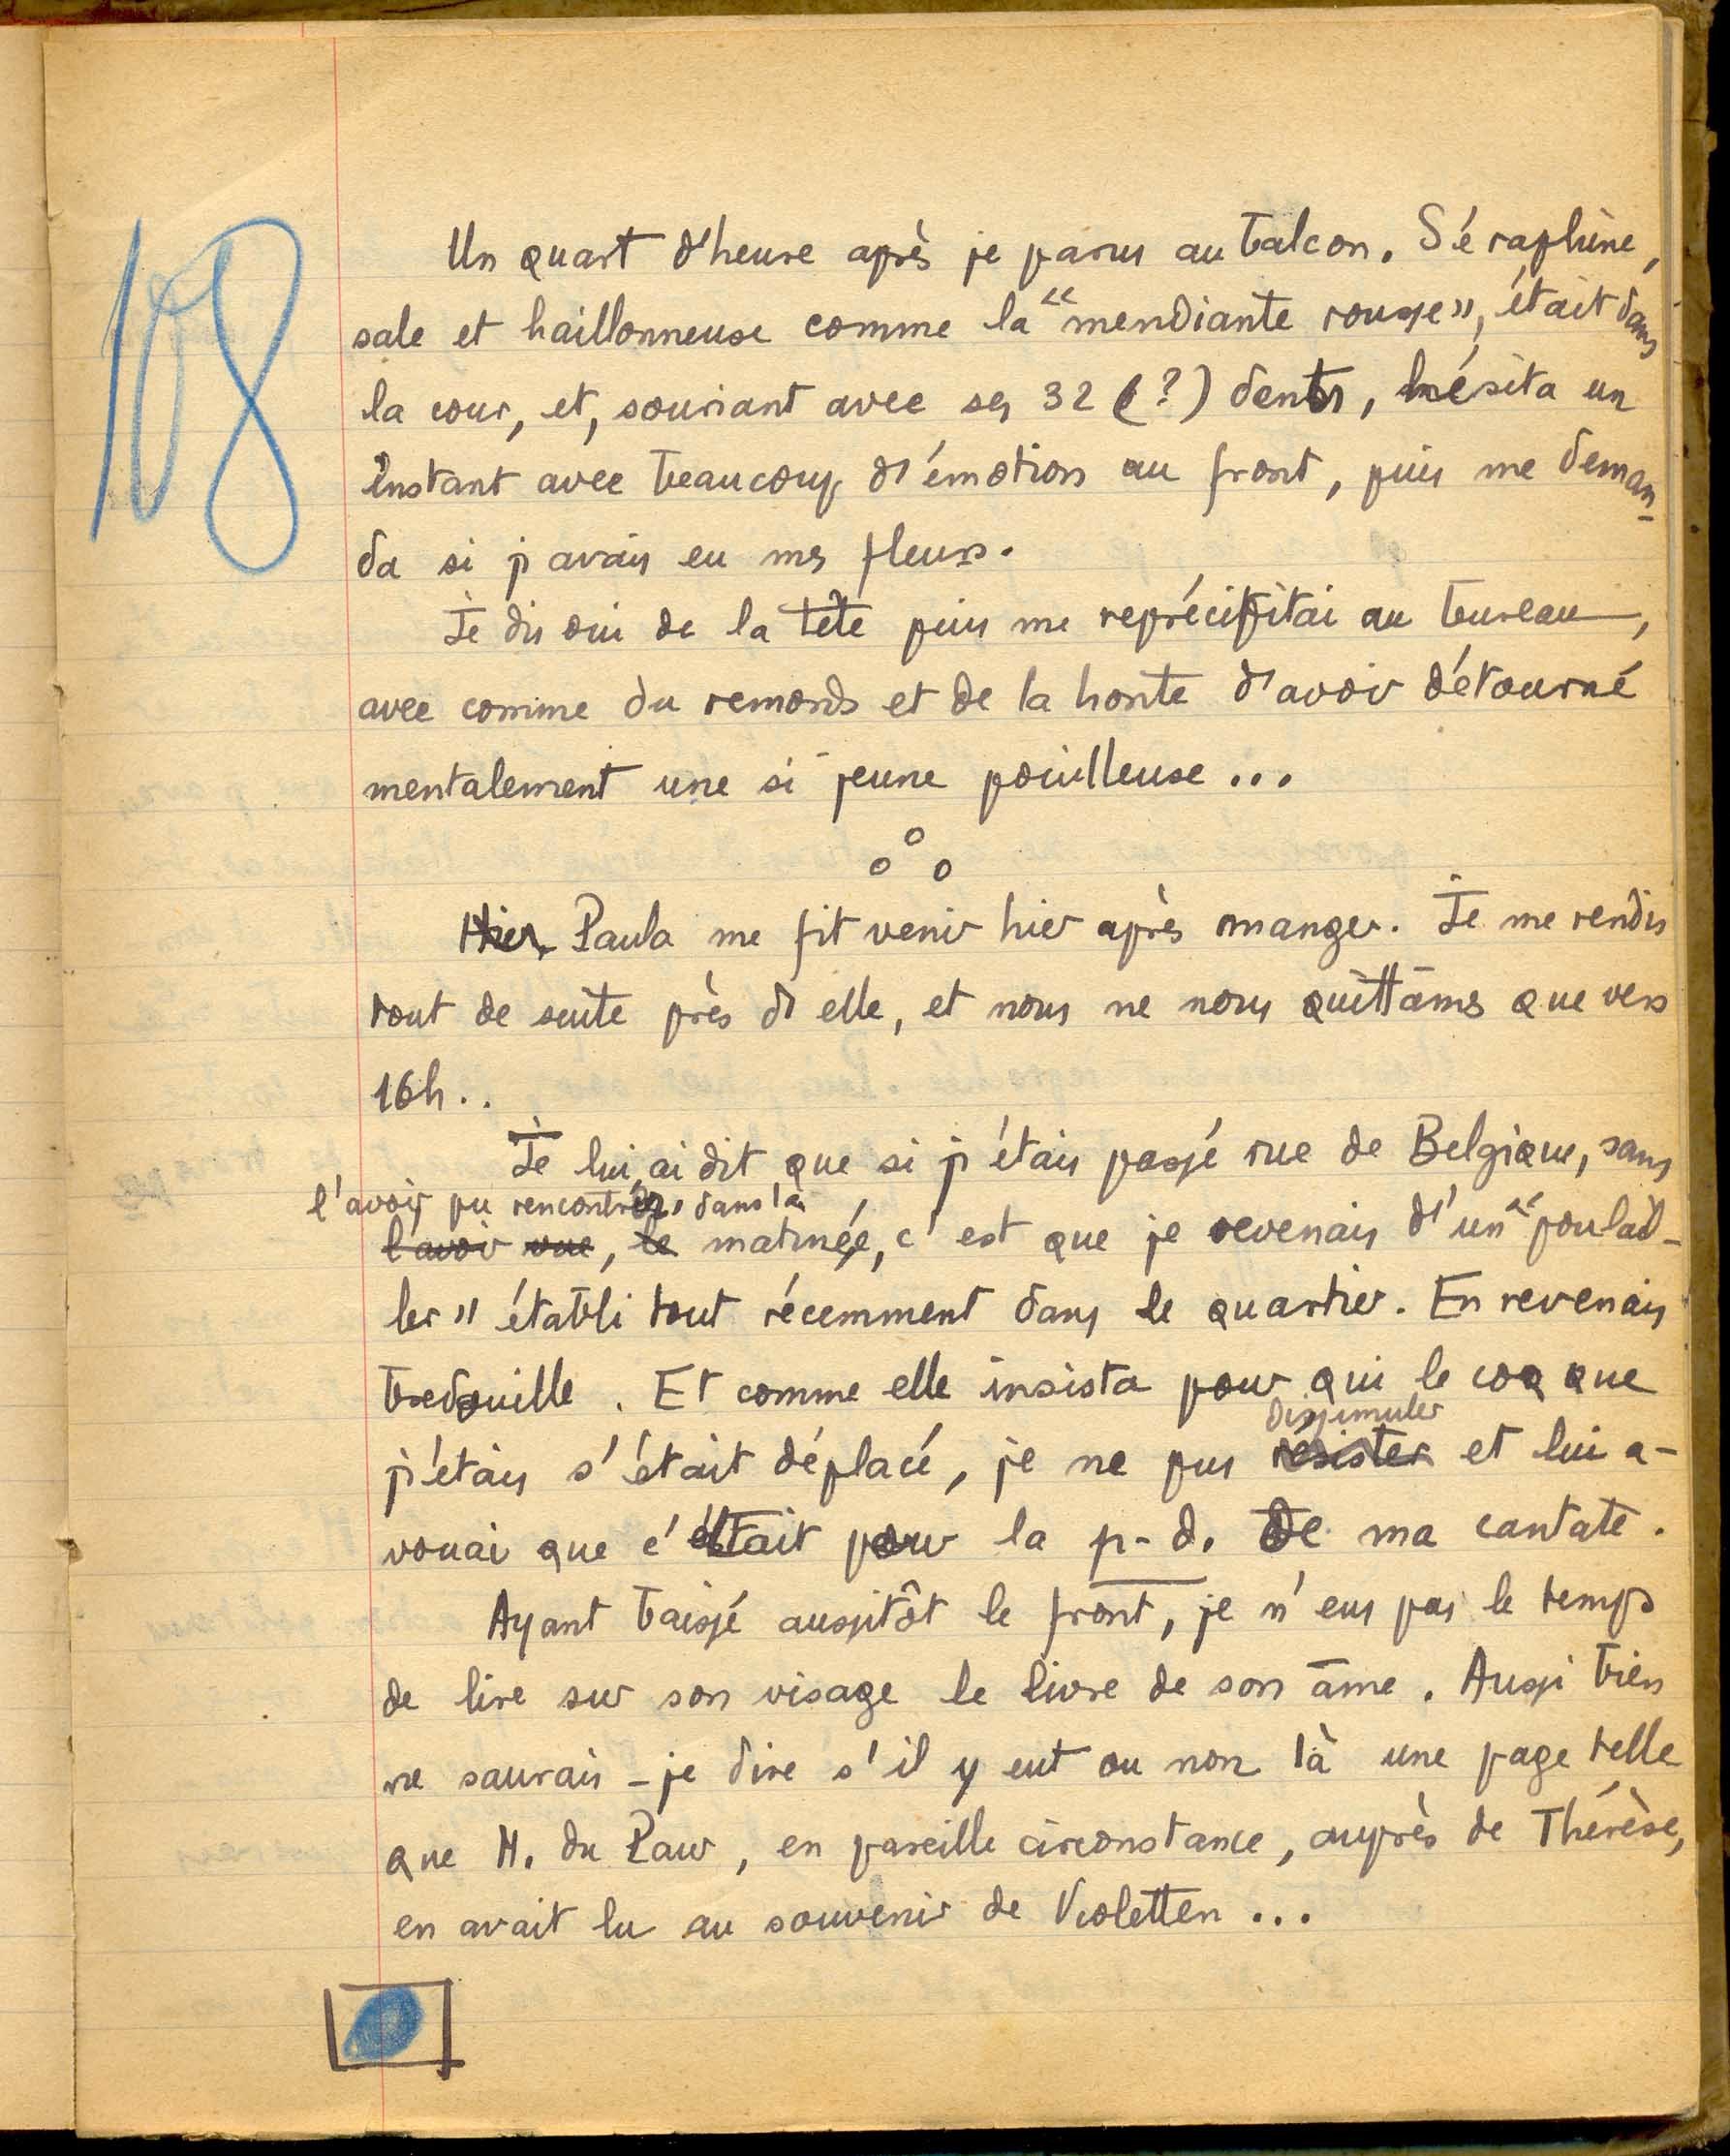 108
Un quart d'heure après je parus au balcon. Séraphine,
sale et haillonneuse comme la "mendiante rouge", était dans
la cour, et, souriant avec ses 32 (?) dents, hésita un
instant avec beaucoup d'émotion au front, puis me deman-
da si j'avais eu mes fleurs.
Je dis oui de la tête puis me reprécipitai au bureau,
avec comme du remords et de la honte d'avoir détourné
mentalement une si jeune pouilleuse...
Hier, Paula me fit venir hier après manger. Je me rendis
tout de suite près d'elle, et nous ne nous quittâmes que vers
16h..
Je lui ai dit que si j'étais passé rue de Belgique, sans
l'avoir pu rencontrer, dans la
l'avoir vue, le matinée, c'est que je revenais d'un "poulail-
ler" établi tout récemment dans le quartier. En revenais
bredouille. Et comme elle insista pour qui le coq que
dissimuler
j'étais s'était déplacé, je ne pus résister et lui a-
vouai que c'était pour la p-d. de ma cantate.
Ayant baissé aussitôt le front, je n'eus pas le temps
de lire sur son visage le livre de son âme. Aussi bien
ne saurais-je dire s'il y eut ou non là une page telle
que M. du Paur, en pareille circonstance, auprès de Thérèse,
en avait lu au souvenir de Violetten...